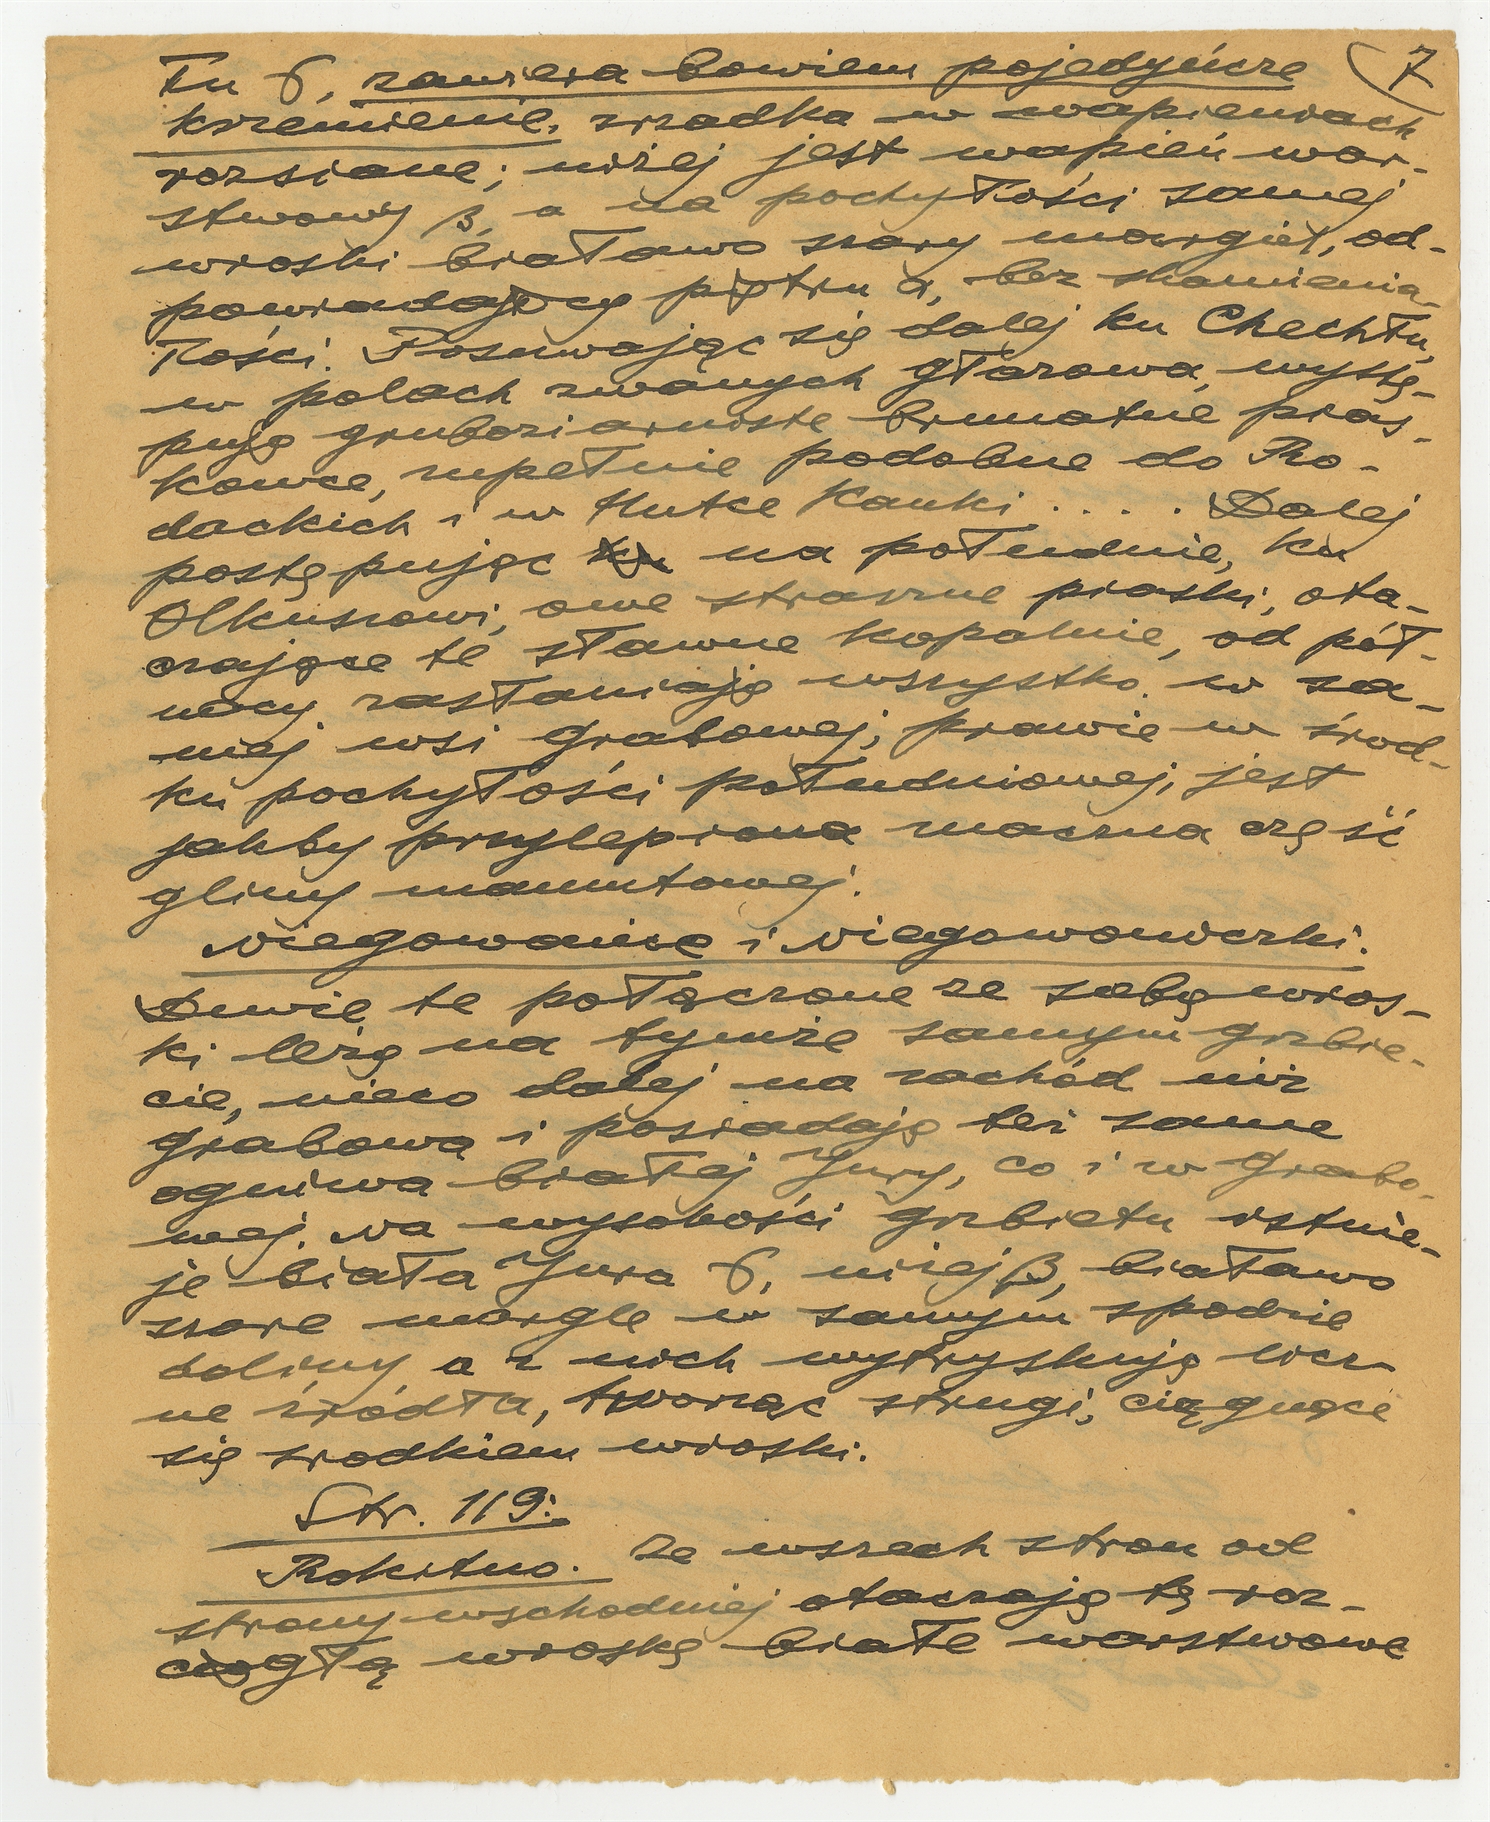 7
Tu δ, zawiera bowiem pojedyńcze
krzemienie, zrzadka w wapieniach
rozsiane; niżej jest wapień war-
stwowy β, a na pochyłości samej
wioski białawo szary margiel, od-
powiadający piętru α, bez skamienia-
łości. Posuwając się dalej ku Chechłu,
w polach zwanych Głazowa, wystę-
pują gruboziarniste brunatne pias-
kowce, zupełnie podobne do Ro-
dackich i w Hutce Kanki . . . . Dalej
postępując na południe, ku
Olkuszowi, owe straszne piaski, ota-
czające te sławne kopalnie, od pół-
nocy zasłaniają wszystko. w sa-
mej wsi Grabowej, prawie w środ-
ku pochyłości południowej, jest
jakby przylepiona znaczna część
gliny mamutowej.
Niegowanice i Niegowoniczki.
Dwie te połączone ze sobą wios-
ki leżą na tymże samym grzbie-
cie, nieco dalej na zachód niż
Grabowa i posiadają też same
ogniwa białej Jury, co i w Grabo-
wej. Na wysokości grzbietu istnie-
je biała Jura δ, niżej β, białawo
szare margle w samym spodzie
doliny, a z nich wytryskują licz-
ne źródła, tworząc strugi, ciągnące
się środkiem wioski.
Str. 119:
Rokitno. Ze wszech stron od
strony wschodniej otaczają tę roz-
ciągłą wioskę białe warstwowe